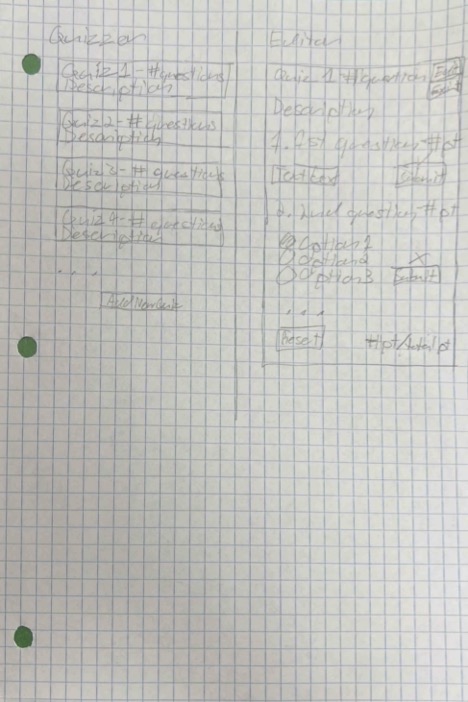 Quizzer
Quiz 1 - # questions
Description
Quiz 2 - # questions
Description
Quiz 3 - # questions
Description
Quiz 4 - # questions
Description
...
Add New Quiz
Editor
Quiz 1 # question
Description
1. question #pt
Text box Submit
2. 2nd question #pt
Option 1
Option 2 X
Option 3 Submit
...
Reset #pt/total pt